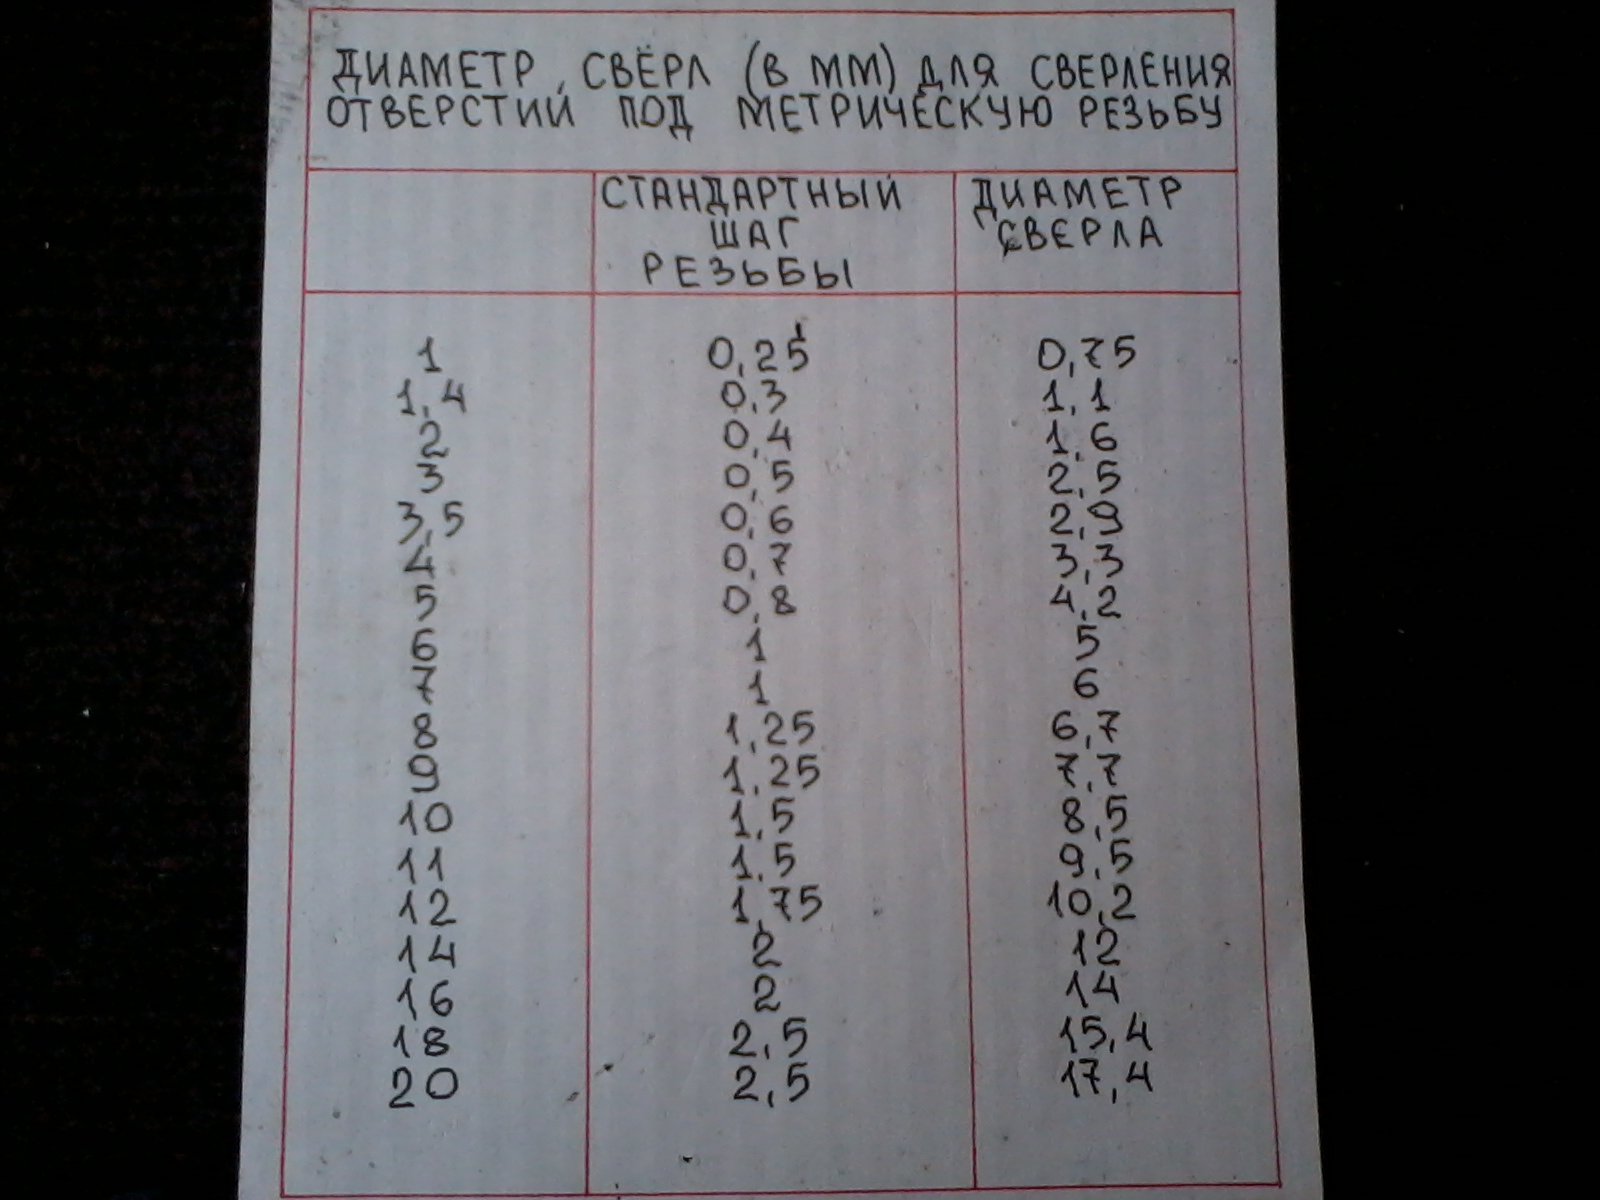 ДИАМЕТР СВЁРЛ (В ММ) ДЛЯ СВЕРЛЕНИЯ
ОТВЕРСТИЙ ПОД МЕТРИЧЕСКУЮ РЕЗЬБУ
СТАНДАРТНЫЙ ДИАМЕТР
ШАГ СВЕРЛА
РЕЗЬБЫ
1 0,25 0,75
1,4 0,3 1,1
2 0,4 1,6
3 0,5 2,5
3,5 0,6 2,9
4 0,7 3,3
5 0,8 4,2
6 1 5
7 1 6
8 1,25 6,7
9 1,25 7,7
10 1,5 8,5
11 1,5 9,5
12 1,75 10,2
14 2 12
16 2 14
18 2,5 15,4
20 2,5 17,4